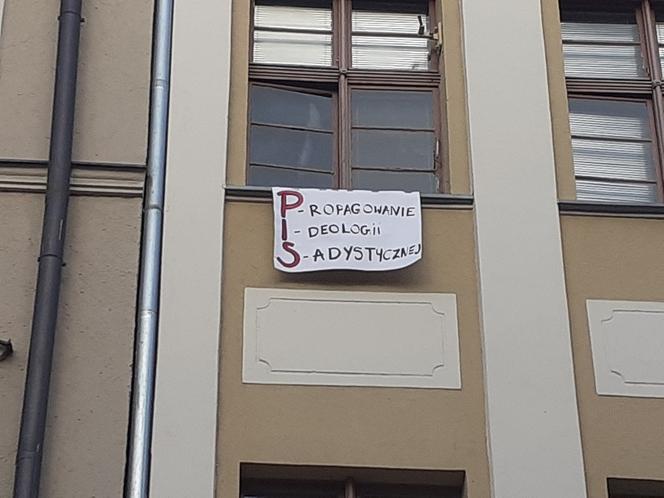 P-ROPAGOWANIE
I-DEOLOGII
S-ADYSTYCZNEJ